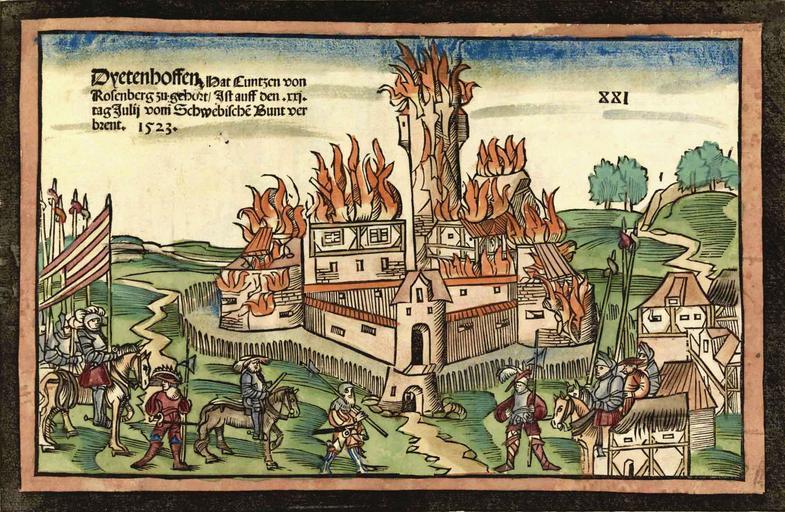 Dyetenhoffen, Hat Cuntzen von
Rosenberg zu gehört/ Ist auff den .xxj.
tag Julij vom Schwebischē Bunt ver
brent. 1523.
XXI